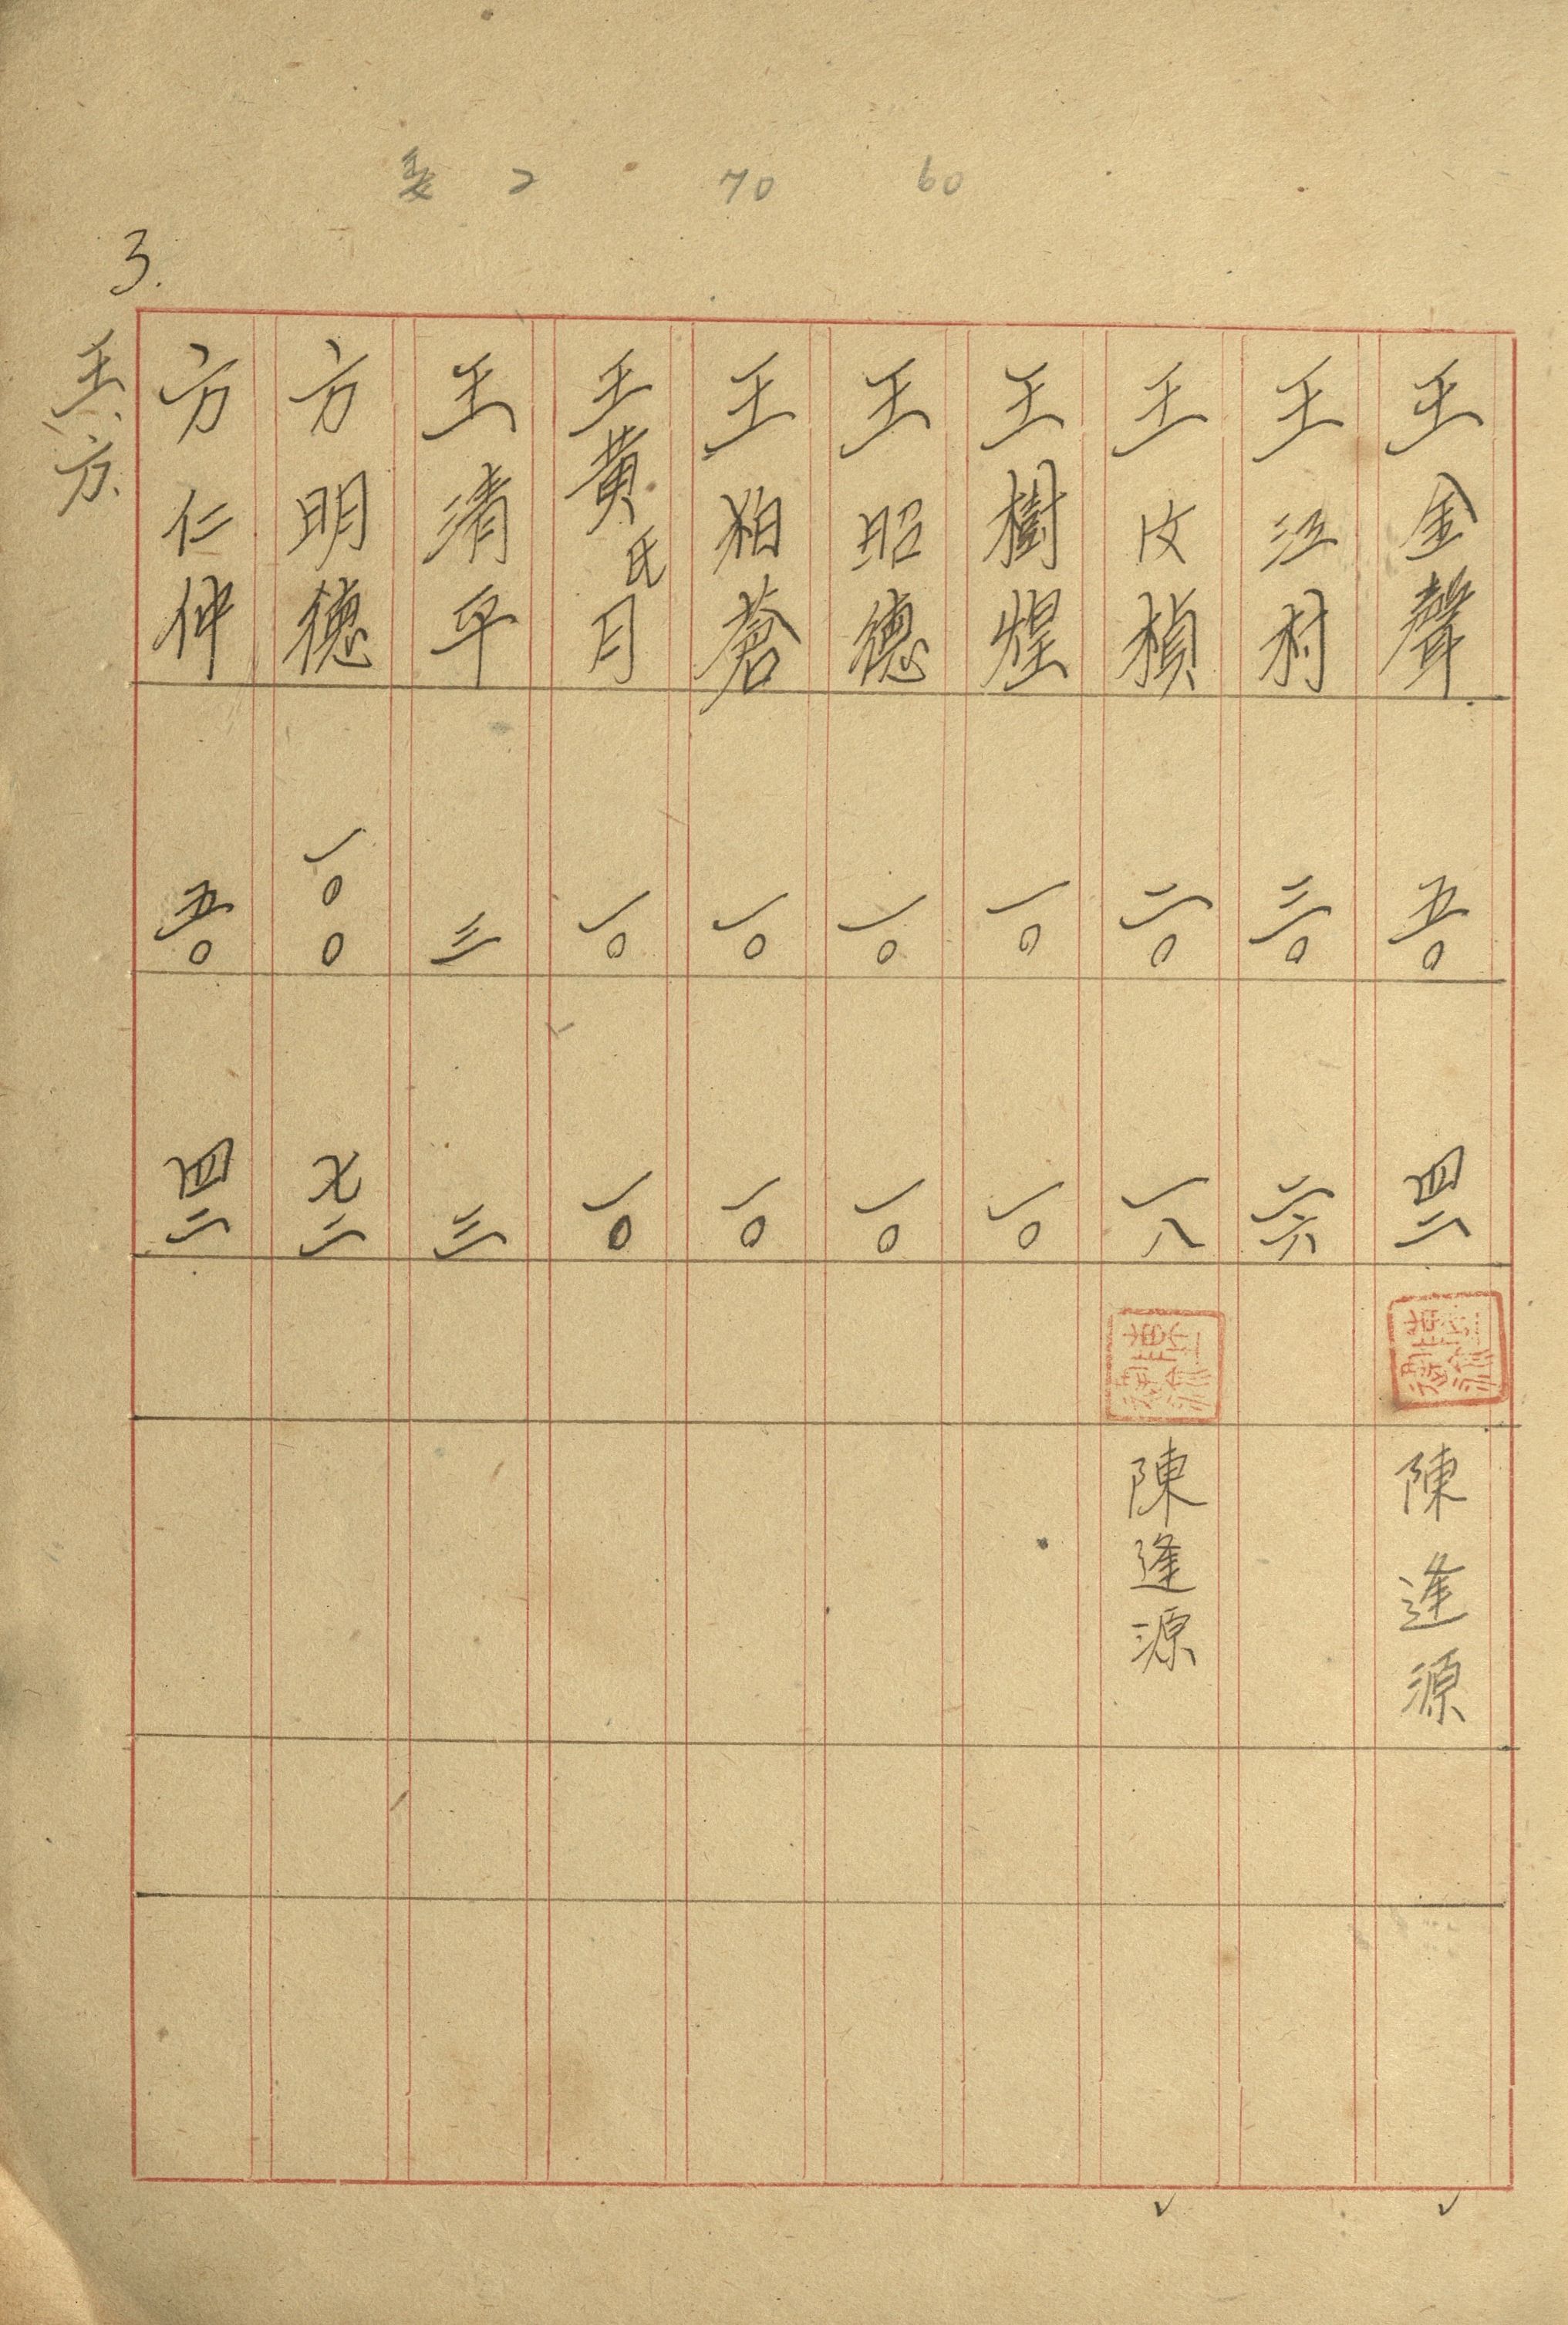 70 60
3.
王金聲 五〇 四二 陳逢源
王江村 三〇 二六
王汶楨 二〇 一八 陳逢源
王樹煌 一〇 一〇
王昭德 一〇 一〇
王柏蒼 一〇 一〇
王黃氏月 一〇 一〇
王清平 三 三
方明德 一〇〇 七二
方仁仲 五〇 四二
王、方、